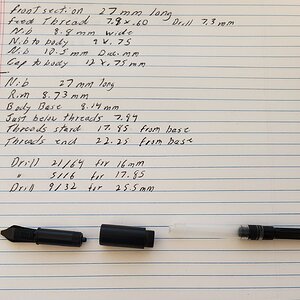 Front section 27 mm long
Feed Thread 7.8 x .60 Drill 7.3 mm
Nib 8.8 mm wide
Nib to body 9 x .75
Nib 10.5 mm Dia. mm
Cap to body 12 x .75 mm
Nib 27 mm long
Rim 8.73 mm
Body Base 8.14 mm
Just below threads 7.94
Threads start 17.85 from base
Threads end 22.25 from base
Drill 21/64 for 16 mm
" 5/16 for 17.85
Drill 9/32 for 25.5 mm